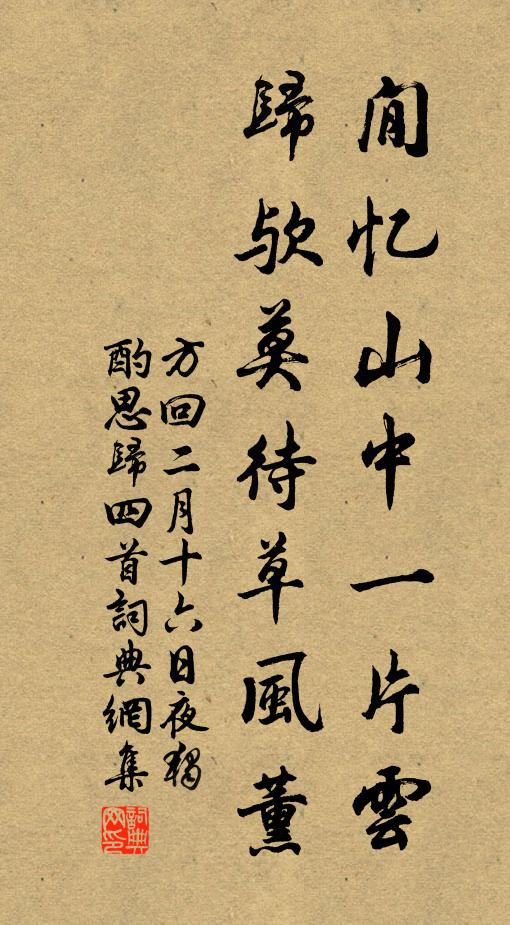 閒忆山中一片雲
歸欤莫待草風薰
方回二月十六日夜獨
酌思歸四首詞典網集
詞典网印